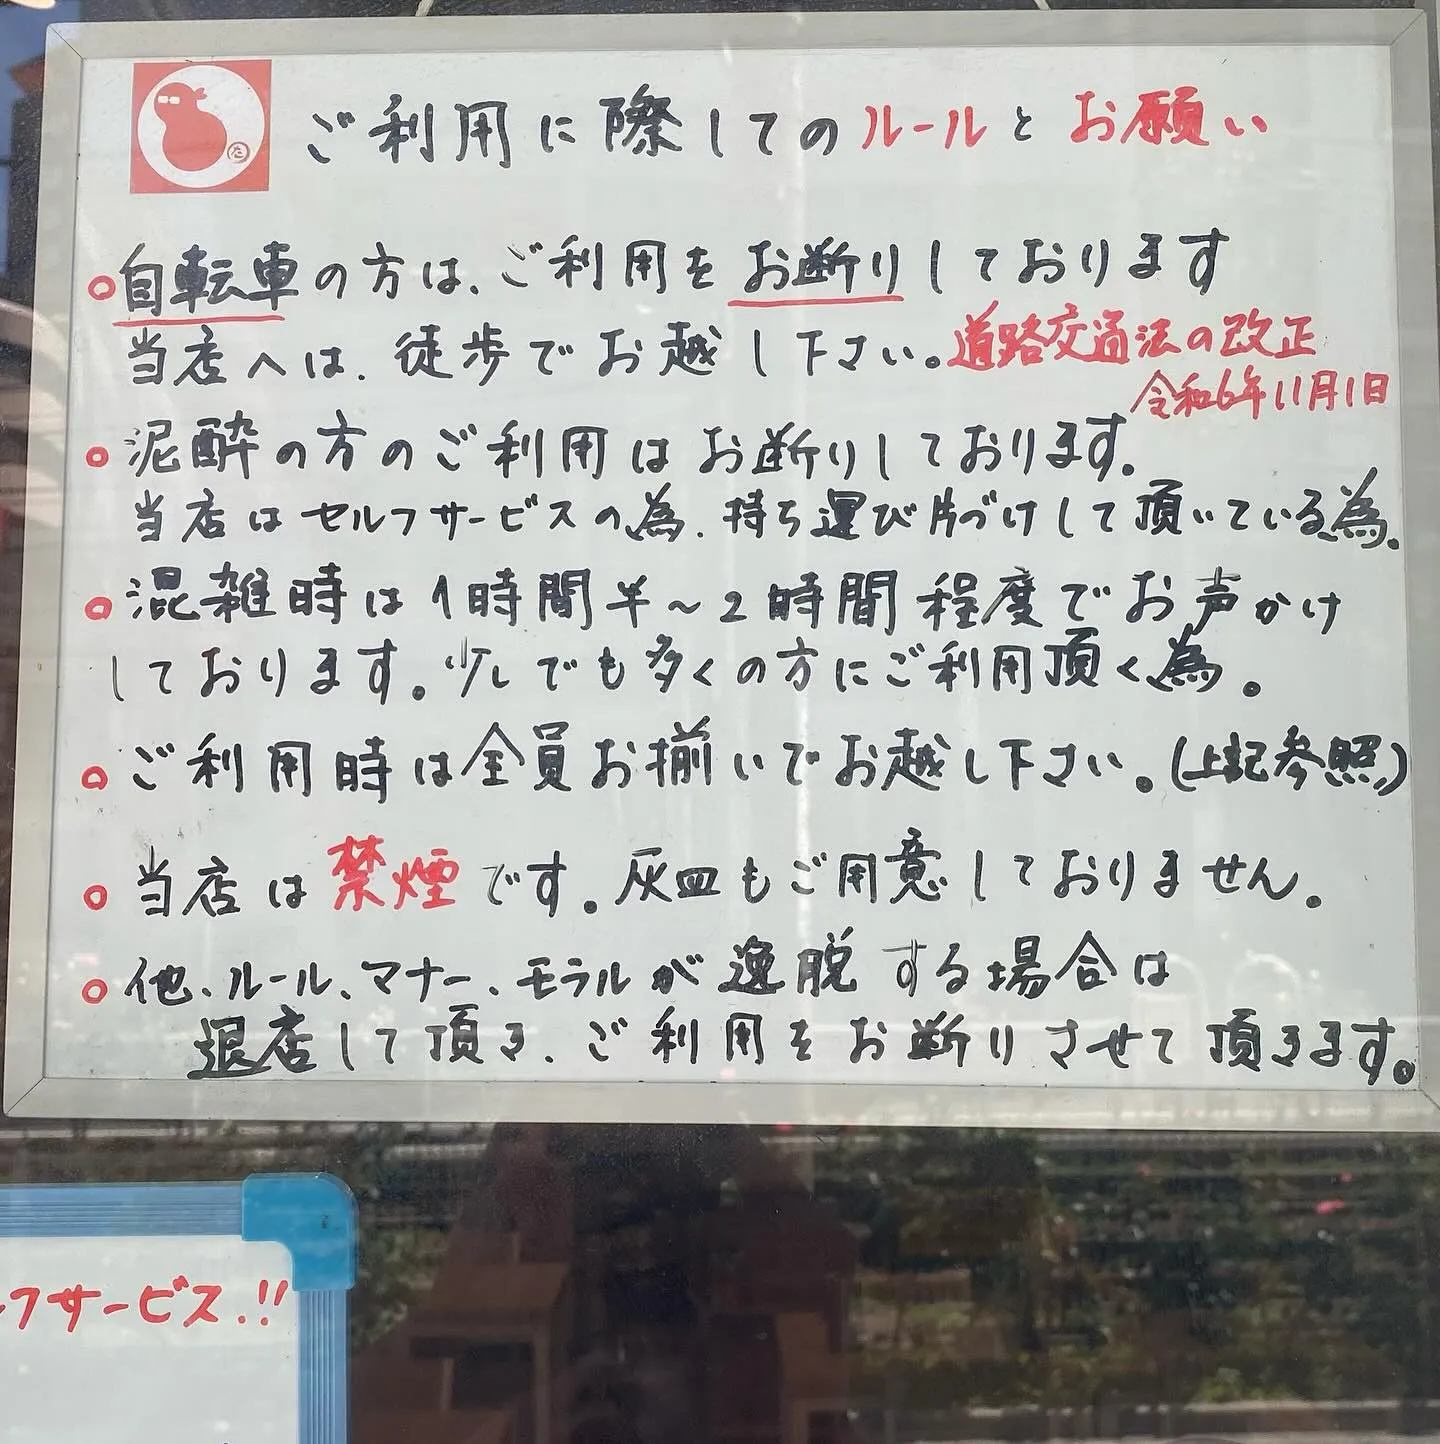 た
ご利用に際してのルールとお願い
○自転車の方は、ご利用をお断りしております
当店へは、徒歩でお越し下さい。道路交通法の改正
令和6年11月1日
○泥酔の方のご利用はお断りしております。
当店はセルフサービスの為、持ち運び片づけして頂いている為。
○混雑時は1時間半～2時間程度でお声かけ
しております。少しでも多くの方にご利用頂く為。
○ご利用時は全員お揃いでお越し下さい。(上記参照)
○当店は禁煙です。灰皿もご用意しておりません。
○他、ルール、マナー、モラルが逸脱する場合は
退店して頂き、ご利用をお断りさせて頂きます。
フサービス.!!